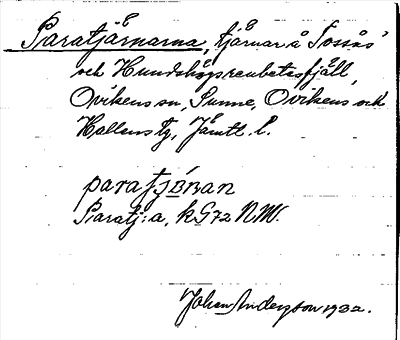 Paratjärnarna, tjärnar å Tossås'
och Hundshögsrenbetesfjäll,
Ovikens sn, Sunne, Ovikens och
Hallens tg, Jämtl. l.
paratjɛ́rnan
Paratj:a, k G 72 N.W.
Johan Anderzson 1932.